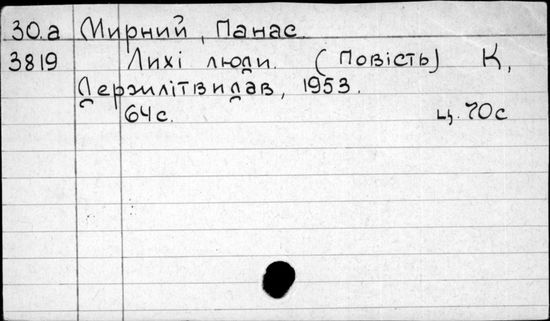 30.а Мирний, Панас
3819 Лихі люди. (Повість) К,
Держлітвидав, 1953.
64с. ц. 70с